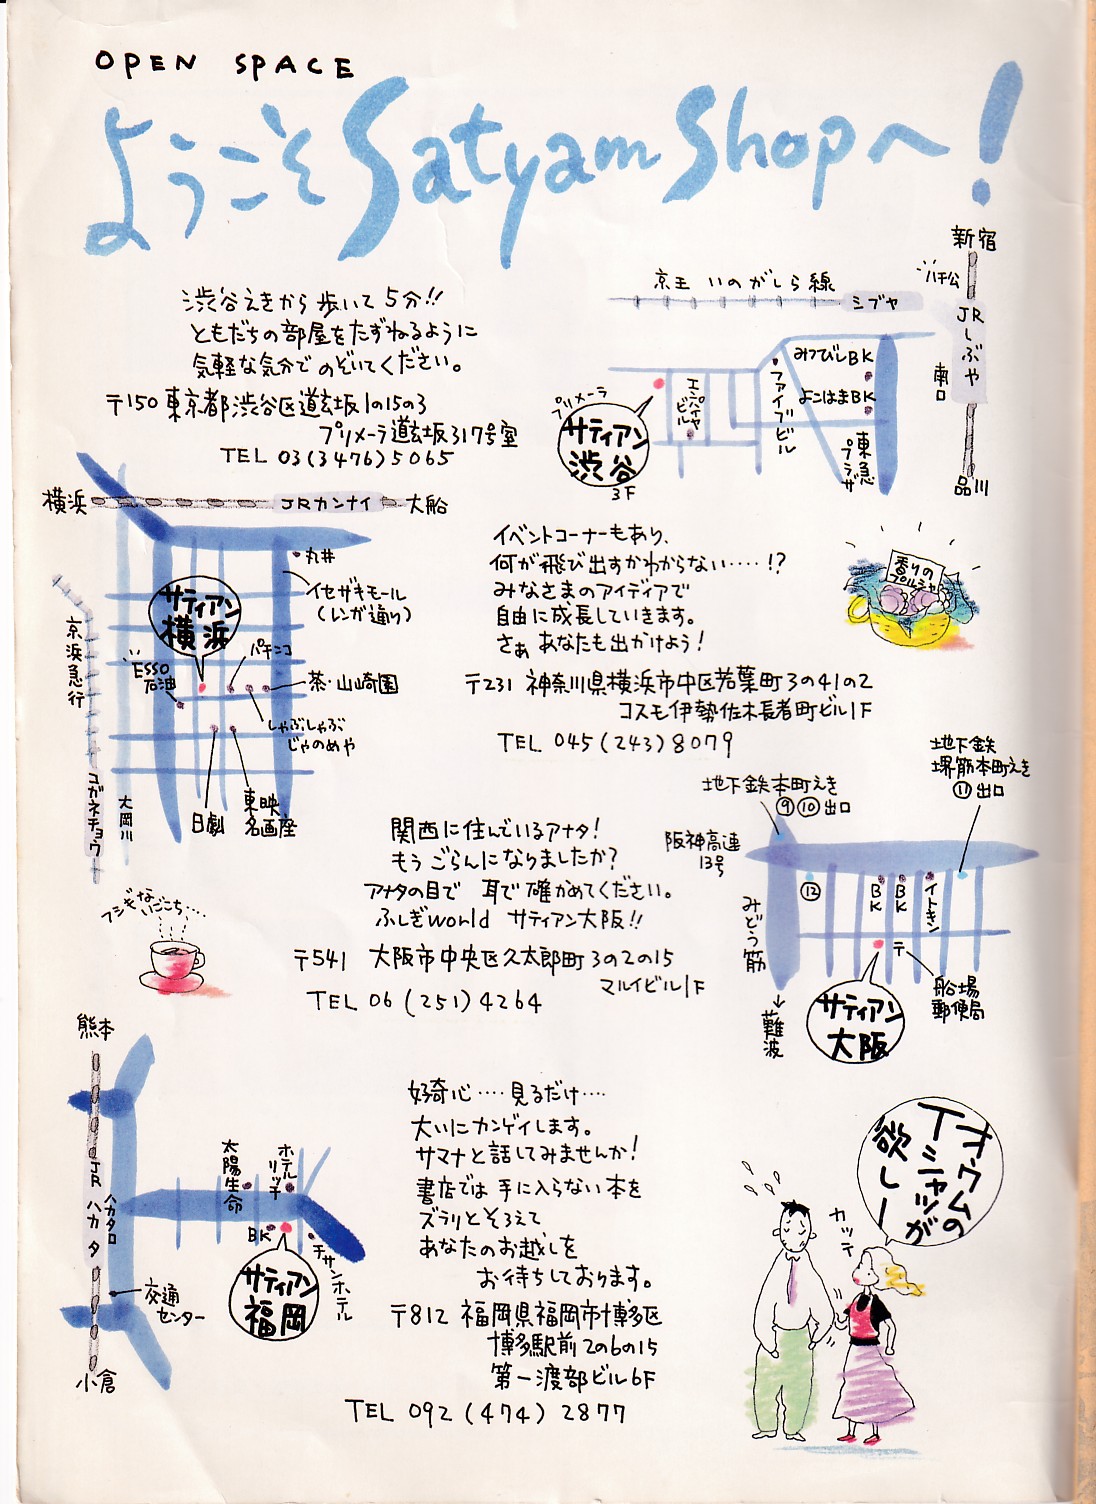 OPEN SPACE
ようこそSatyam Shopへ!
渋谷えきから歩いて5分!!
ともだちの部屋をたずねるように
気軽な気分でのぞいてください。
〒150 東京都渋谷区道玄坂1の15の3
プリメーラ道玄坂317号室
TEL 03(3476)5065
新宿
ハチ公
京王 いのがしら線
シブヤ
JRしぶや
南口
品川
みつびしBK
よこはまBK
東急プラザ
ファイブビル
エンペイヤビル
プリメーラ
サティアン
渋谷
3F
横浜
JRカンナイ
大船
丸井
イセザキモール
(レンガ通り)
サティアン
横浜
パチンコ
ESSO
石油
茶・山崎園
しゃぶしゃぶ
じゃのめや
日劇
東映
名画座
京浜急行
コガネチョウ
大岡川
イベントコーナーもあり、
何が飛び出すかわからない……!?
みなさまのアイディアで
自由に成長していきます。
さぁ あなたも出かけよう!
〒231 神奈川県横浜市中区若葉町3の41の2
コスモ伊勢佐木長者町ビル1F
TEL 045(243)8079
香りの
プルシャ
関西に住んでいるアナタ!
もう ごらんになりましたか?
アナタの目で 耳で確かめてください。
ふしぎworld サティアン大阪!!
〒541 大阪市中央区久太郎町3の2の15
マルイビル1F
TEL 06(251)4264
フシギな
いごこち….
地下鉄本町えき
⑨⑩出口
地下鉄
堺筋本町えき
⑪出口
阪神高速
13号
⑫
BK
BK
イトキン
みどう筋
難波
〒
船場
郵便局
サティアン
大阪
好奇心….見るだけ….
大いにカンゲイします。
サマナと話してみませんか!
書店では手に入らない本を
ズラリとそろえて
あなたのお越しを
お待ちしております。
〒812 福岡県福岡市博多区
博多駅前2の6の15
第一渡部ビル6F
TEL 092(474)2877
熊本
JRハカタ
ハカタ口
小倉
交通
センター
太陽生命
ホテルリッチ
BK
チサンホテル
サティアン
福岡
オウムの
Tシャツが
欲しー
カッテ